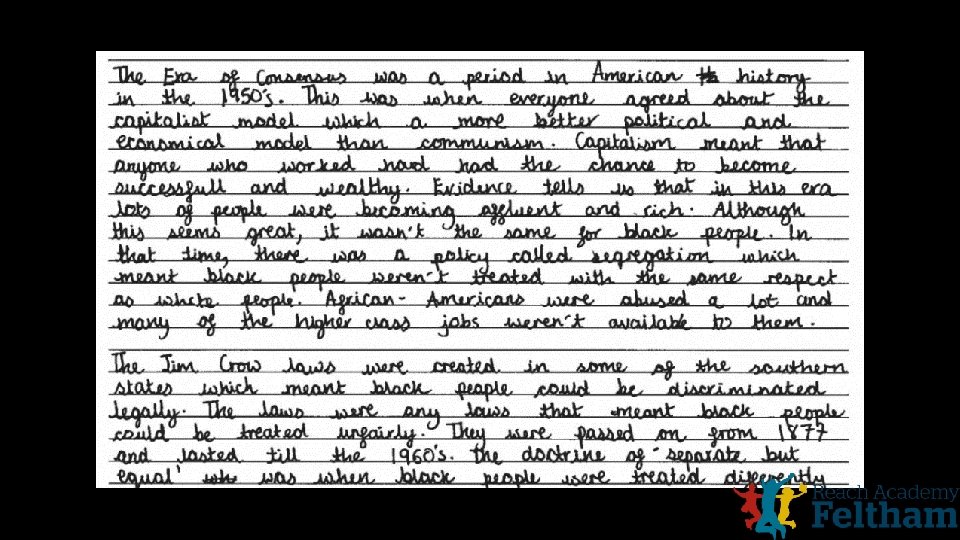 The Era of Consensus was a period in American history
in the 1950's. This was when everyone agreed about the
capitalist model which a more better political and
economical model than communism. Capitalism meant that
anyone who worked hard had the chance to become
successfull and wealthy. Evidence tells us that in this era
lots of people were becoming affluent and rich. Although
this seems great, it wasn't the same for black people. In
that time, there was a policy called segregation which
meant black people weren't treated with the same respect
as white people. African-Americans were abused a lot and
many of the higher class jobs weren't available to them.
The Jim Crow laws were created in some of the southern
states which meant black people could be discriminated
legally. The laws were any laws that meant black people
could be treated unfairly. They were passed on from 1877
and lasted till the 1960's. The doctrine of 'separate but
equal' was when black people were treated differently
Reach Academy
Feltham